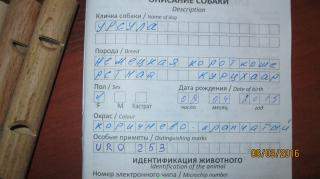 ОПИСАНИЕ СОБАКИ
Description
Кличка собаки / Name of dog
УРСУЛА
Порода / Breed
НЕМЕЦКАЯ КОРОТКОШЕ
РСТНАЯ КУРЦХААР
Пол / Sex
Дата рождения / Date of birth
F M Кастрат
число месяц год
Окрас / Colour
КОРИЧНЕВО-КРАПЧАТЫЙ
Особые приметы / Distinguishing marks
URO 253
ИДЕНТИФИКАЦИЯ ЖИВОТНОГО
Identification of the animal
Номер электронного чипа / Microchip number